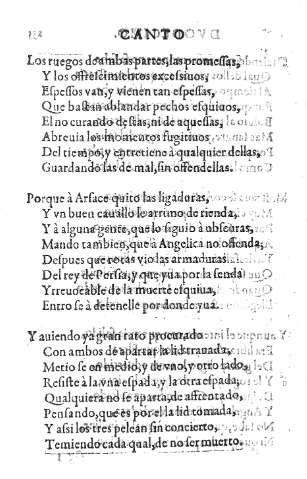 CANTO
Los ruegos de ambas partes, las promessas,
Y los ofrescimientos excessiuos,
Espessos van, y vienen tan espessas,
Que bastan ablandar pechos esquiuos,
El no curando destas, ni de aquessas,
Abreuia los momentos fugitiuos
Del tiempo, y entretiene à qualquier dellas,
Guardando las de mal, sin offendellas.
Porque à Arsace quito las ligaduras,
Y vn buen cauallo le arrimo de rienda,
Y à alguna gente, que lo siguio à obscuras,
Mando tambien, que à Angelica no offenda,
Despues que rotas vio las armaduras
Del rey de Persia, y que yua por la senda
Yrreuocable de la muerte esquiua,
Entro se à detenelle por donde yua.
Y auiendo ya gran rato procurado
Con ambos de apartar la lid trauada,
Metio se en medio, y de vno, y otro lado,
Resiste à la vna espada, y la otra espada;
Qualquiera no se aparta, de affrentado,
Pensando, que es por el la lid tomada,
Y assi los tres pelean sin concierto,
Temiendo cada qual, de no ser muerto.